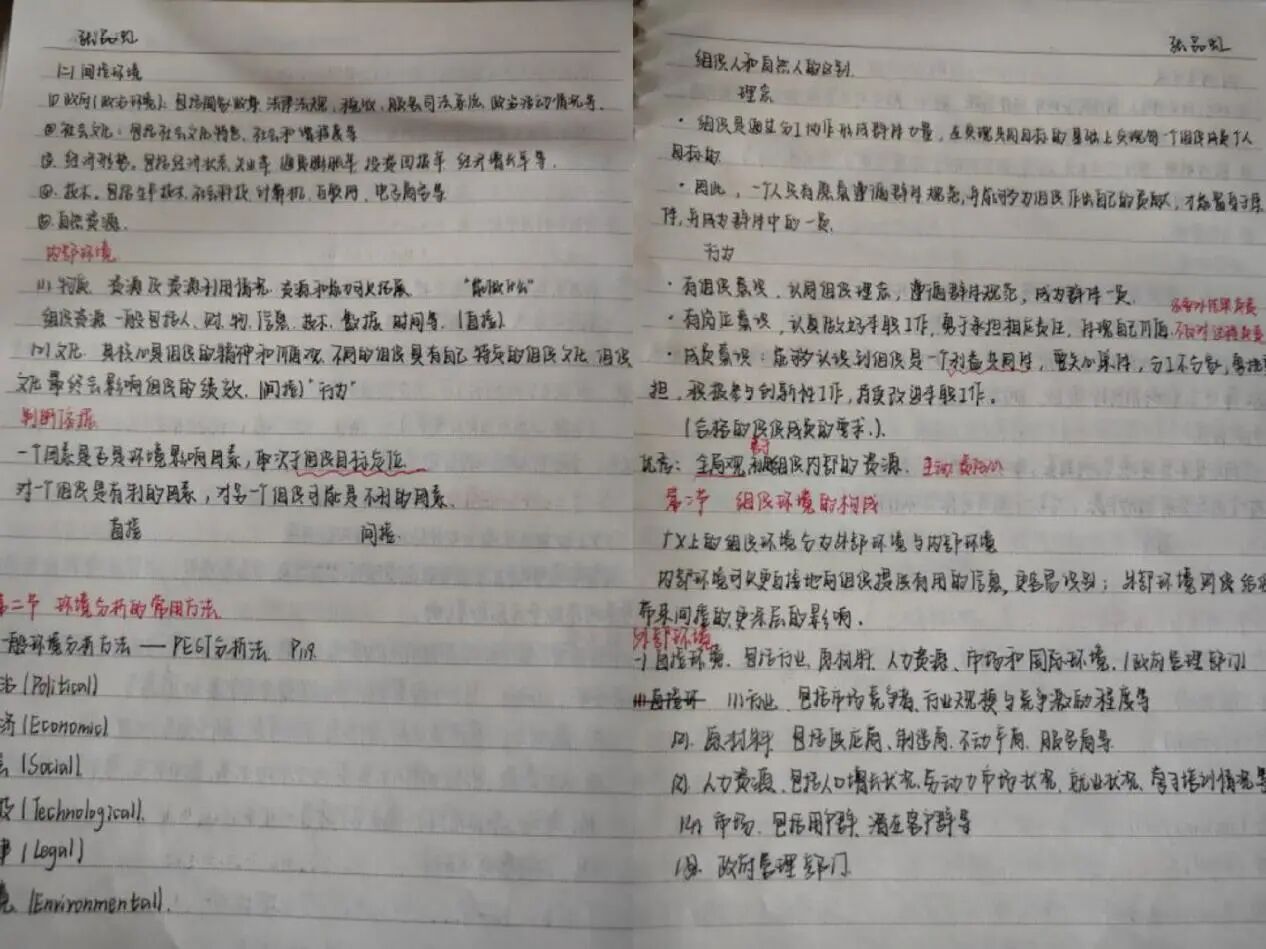 (二)间接环境
(1)政府(政治环境):包括国家政策,法律法规,税收,服务司法系统,政治活动情况等.
②社会文化:包括社会文化特色,社会和谐程度等
③. 经济形势。包括经济状系,失业率,通货膨胀率 投资回报率 经济增长率等.
④.技术。包括生产技术,社会科技,计算机,互联网,电子商务等
自然资源.
内部环境
(1)物质 资源及资源利用情况.资源和能力可大拓展. "能做什么"
组织资源一般包括人、财、物、信息、技术、数据、时间等.(直接)
(2)文化. 其核心是组织的精神和价值观.不同的组织具有自己特质的组织文化.组织
文化最终会影响组织的绩效.(间接)"行为"
判断依据
一个因素是否是环境影响因素,取决于组织目标定位
对一个组织是有利的因素,对另一个组织可能是不利的因素.
直接 间接
第二节 环境分析的常用方法
一般环境分析方法 —— PEST分析法. P19.
治(Political)
济(Economic)
(Social)
技(Technological).
律(Legal)
境(Environmental).
组织人和自然人的区别.
理念
·组织是通过分工协作形成群体力量,在实现共同目标的基础上实现每一个组织成员个人
目标的
·因此,一个人只有愿意遵循群体规范,并能够为组织作出自己的贡献,才能置身于集
体,并成为群体中的一员.
行为
·有组织意识,认同组织理念,遵循群体规范,成为群体一员.
·有岗位意识,认真做好本职工作,勇于承担相应责任,体现自己价值.
不仅对过程负责
·成员意识:能够认识到组织是一个利益共同体,要关心集体,分工不分家,勇挑重
担,积极参与创新性工作,持续改进本职工作。
(合格的组织成员的要求.).
全局观 组织内部的资源. 主动
第二节 组织环境的构成
广义上的组织环境分为外部环境与内部环境
内部环境可以更直接地向组织提供有用的信息,更容易识别;外部环境则给组织
带来间接的更深层的影响.
外部环境
(一)直接环境.包括行业、原材料、人力资源、市场和国际环境.(政府管理部门)
(1)行业.包括市场竞争者、行业规模与竞争激励程度等
(2).原材料 包括供应商、制造商、不动产商、服务商等
(3).人力资源.包括人口增长状况、劳动力市场状况,就业状况、学习培训情况等
(4)市场.包括用户群、潜在客户群等
(5).政府管理部门